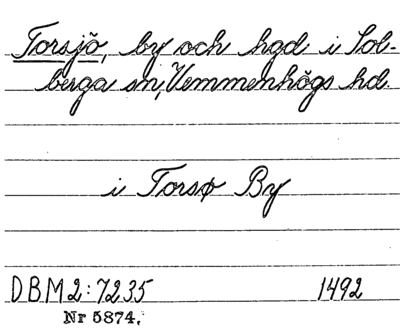 Torsjö, by och hgd i Sol-
berga sn, Vemmenhögs hd.
i Torsø By
DBM 2:7235 1492
Nr 5874.